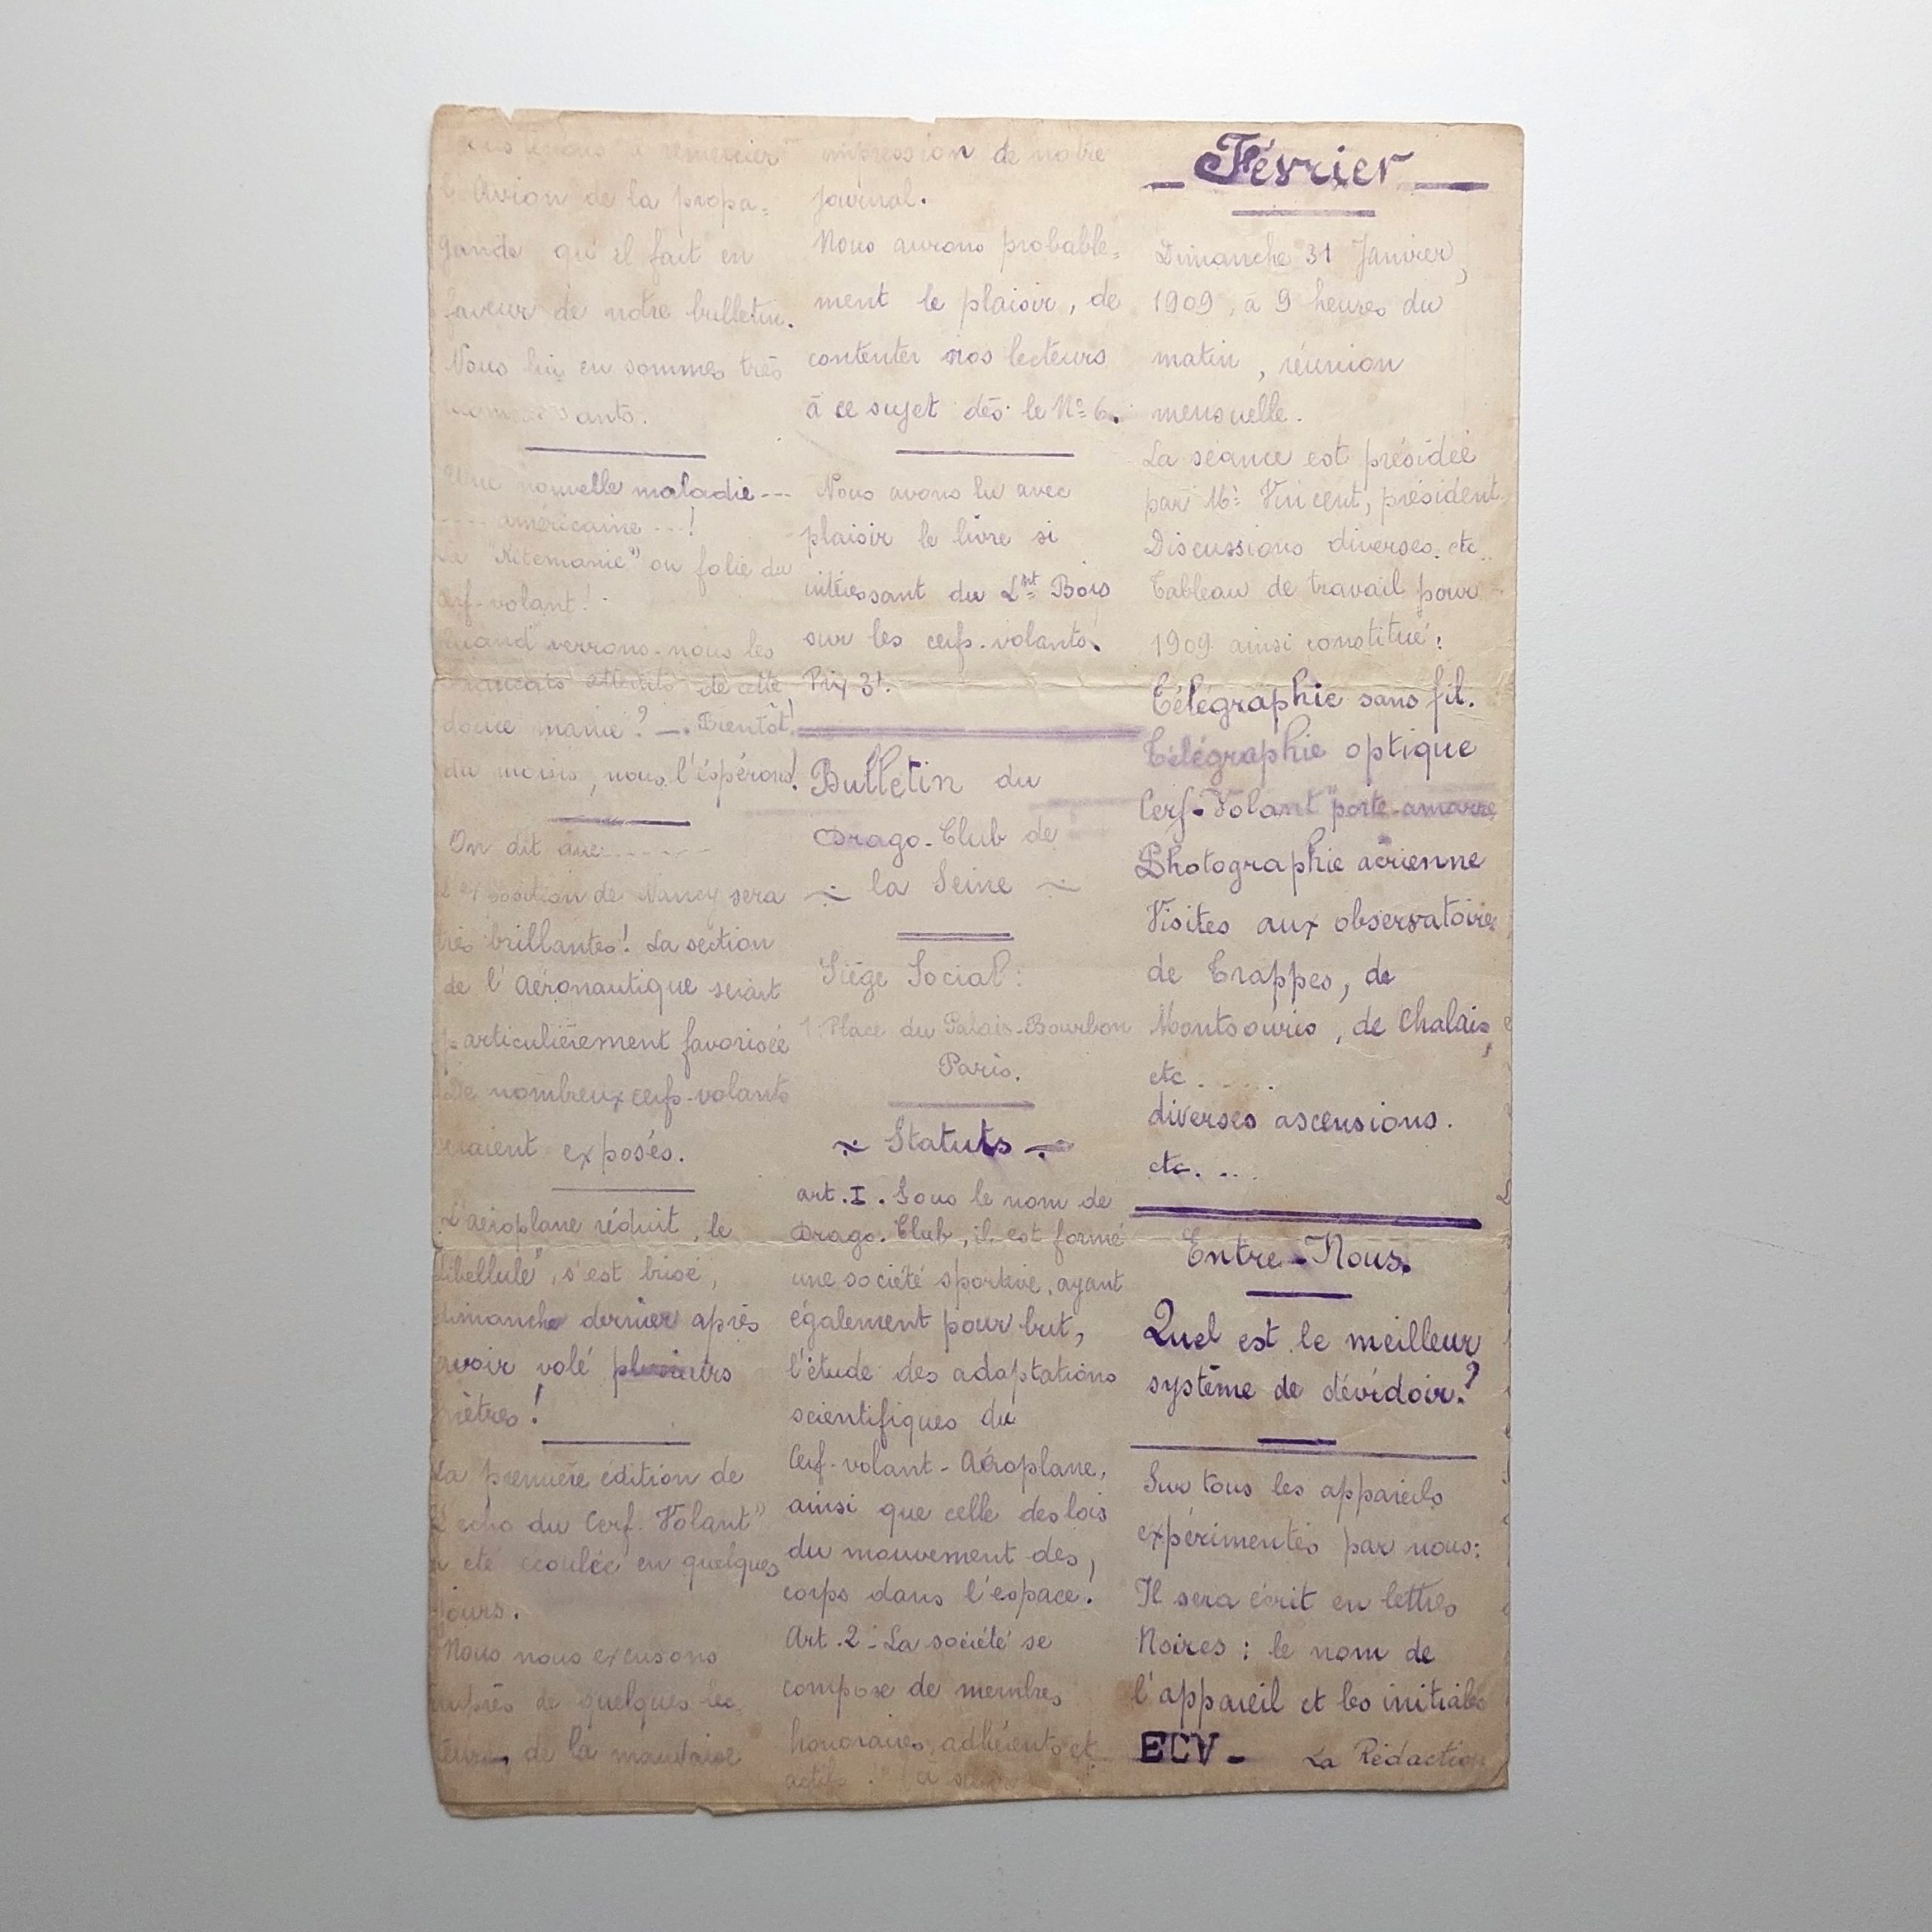 tenons à remercier
l'Avion de la propa=
gande qu'il fait en
faveur de notre bulletin.
Nous lui en sommes très
Une nouvelle maladie---
---- américaine ---!
La "Kitemanie" ou folie du
cerf-volant!
Quand verrons-nous les
Français atteints de cette
douce manie? —. Bientôt!
du moins, nous l'éspérons!
On dit que------
l'exposition de Nancy sera
très brillantes! La section
de l'Aéronautique serait
particulièrement favorisée
De nombreux cerfs-volants
seraient exposés.
L'aéroplane réduit, le
Libellule", s'est brisé,
dimanche dernier après
avoir volé plusieurs
mètres!
La première édition de
L'écho du Cerf-Volant"
a été écoulée en quelques
jours.
Nous nous excusons
auprès de quelques lec
teurs, de la mauvaise
impression de notre
journal.
Nous aurons probable=
ment le plaisir, de
contenter nos lecteurs
à ce sujet dès le No 6.
Nous avons lu avec
plaisir le livre si
intéressant du Lnt Bois
sur les cerfs-volants.
Prix 3f.
Bulletin du
Drago-Club de
~ la Seine ~
Siège Social:
1. Place du Palais-Bourbon
Paris.
~ Statuts ~
art.I. Sous le nom de
Drago-Club, il est formé
une société sportive, ayant
également pour but,
l'étude des adaptations
scientifiques du
Cerf-volant-Aéroplane,
ainsi que celle des lois
du mouvement des,
corps dans l'espace.
Art.2-La société se
compose de membres
honoraires, adhérents et
actifs.
_ Février _
Dimanche 31 Janvier,
1909, à 9 heures du
matin, réunion
mensuelle.
La séance est présidée
par Mr Vincent, président.
Discussions diverses.etc..
Tableau de travail pour
1909 ainsi constitué:
Télégraphie sans fil.
Télégraphie optique
Cerf-Volant "porte-amarre
Photographie aérienne
Visites aux observatoires
de Trappes, de
Montsouris, de Chalais,
etc.....
diverses ascensions.
etc....
Entre-Nous.
Quel est le meilleur
système de dévidoir?
Sur tous les appareils
expérimentés par nous:
Il sera écrit en lettres
Noires: le nom de
l'appareil et les initiales
ECV- La Rédaction